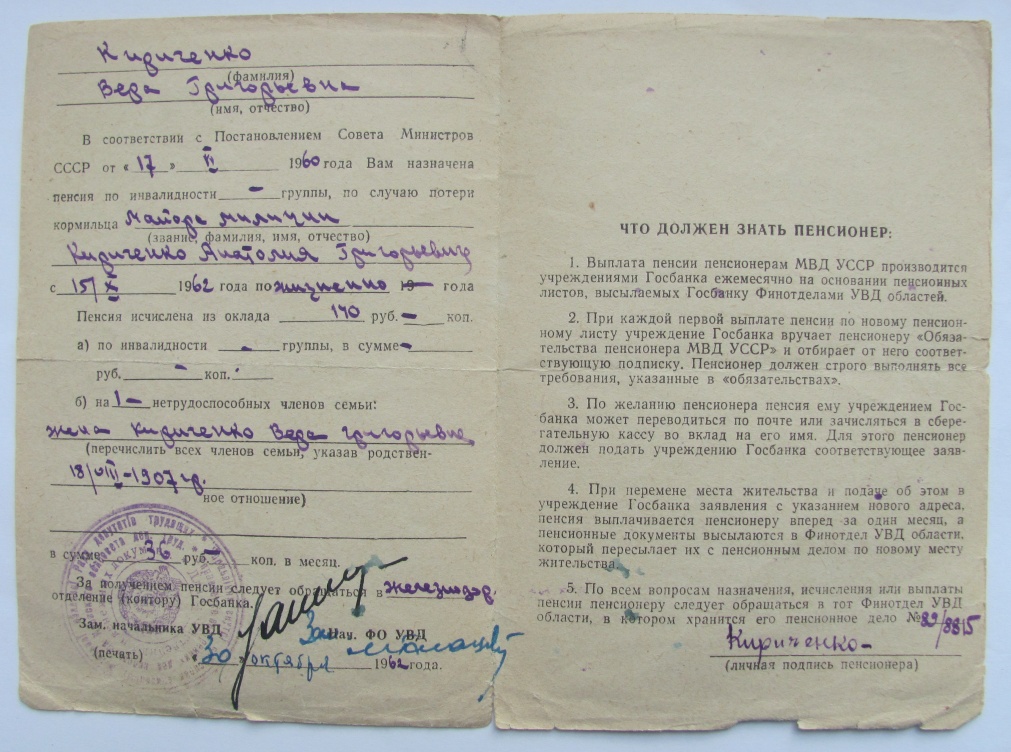 Кириченко
(фамилия)
Вера Григорьевна
(имя, отчество)
В соответствии с Постановлением Совета Министров
СССР от «17» VI 1960 года Вам назначена
пенсия по инвалидности – группы, по случаю потери
кормильца Майора милиции
(звание, фамилия, имя, отчество)
Кириченко Анатолия Григорьевича
с 15/X 1962 года пожизненно 19– года
Пенсия исчислена из оклада 140 руб. – коп.
а) по инвалидности – группы, в сумме –
руб. – коп.
б) на 1– нетрудоспособных членов семьи:
жена Кириченко Вера Григорьевна
(перечислить всех членов семьи, указав родствен-
18/VIII–1907 г.р.
ное отношение)
в сумме 36 руб. – коп. в месяц.
За получением пенсии следует обращаться в Железнодор.
отделение (контору) Госбанка.
Зам. начальника УВД
Зам Нач. ФО УВД
(печать) «30» октября 1962 года.
ЧТО ДОЛЖЕН ЗНАТЬ ПЕНСИОНЕР:
1. Выплата пенсии пенсионерам МВД УССР производится
учреждениями Госбанка ежемесячно на основании пенсионных
листов, высылаемых Госбанку Финотделами УВД областей.
2. При каждой первой выплате пенсии по новому пенсион-
ному листу учреждение Госбанка вручает пенсионеру «Обяза-
тельства пенсионера МВД УССР» и отбирает от него соответ-
ствующую подписку. Пенсионер должен строго выполнять все
требования, указанные в «обязательствах».
3. По желанию пенсионера пенсия ему учреждением Гос-
банка может переводиться по почте или зачисляться в сбере-
гательную кассу во вклад на его имя. Для этого пенсионер
должен подать учреждению Госбанка соответствующее заяв-
ление.
4. При перемене места жительства и подаче об этом в
учреждение Госбанка заявления с указанием нового адреса,
пенсия выплачивается пенсионеру вперед за один месяц, а
пенсионные документы высылаются в Финотдел УВД области,
который пересылает их с пенсионным делом по новому месту
жительства.
5. По всем вопросам назначения, исчисления или выплаты
пенсии пенсионеру следует обращаться в тот Финотдел УВД
области, в котором хранится его пенсионное дело № 89/8815
Кириченко
(личная подпись пенсионера)